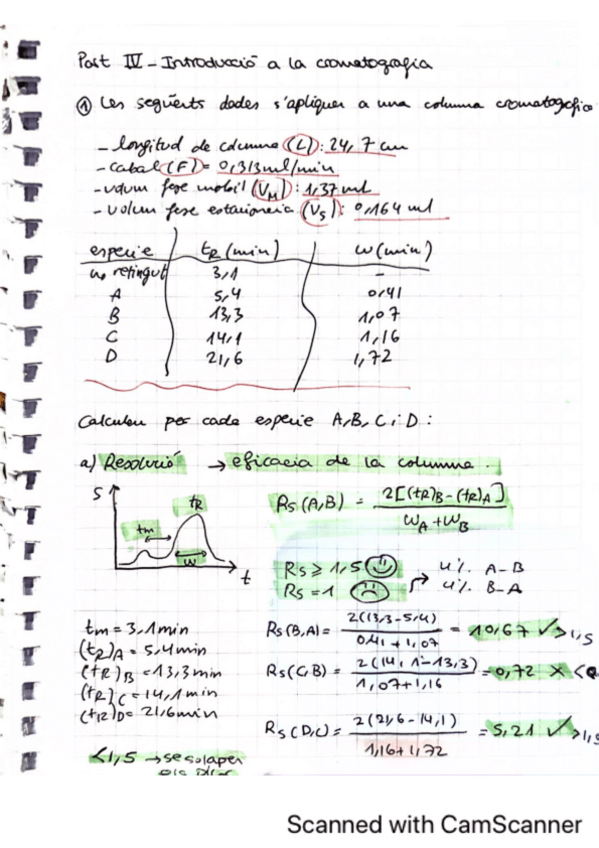 Part IV - Introducció a la cromatografia
① Les següents dades s'apliquen a una columna cromatogràfia
- longitud de columna (L): 24,7 cm
- cabal (F) = 0,313 ml/min
- volum fase mobil (VM): 1,37 ml
- volum fase estacionaria (VS): 0,164 ml
especie tR (min) w (min)
no retingut 3,1 -
A 5,4 0,41
B 13,3 1,07
C 14,1 1,16
D 21,6 1,72
Calculeu per cada especie A, B, C i D:
a) Resolució → eficacia de la columna.
S tm tR w t
Rs (A,B) = 2[(tR)B-(tR)A] / WA + WB
Rs ≥ 1,5 4% A-B
Rs = 1 4% B-A
tm = 3,1 min
(tR)A = 5,4 min
(tR)B = 13,3 min
(tR)C = 14,1 min
(tR)D = 21,6 min
Rs(B,A) = 2(13,3-5,4) / 0,41 + 1,07 = 10,67 ✓ > 1,5
Rs(C,B) = 2(14,1-13,3) / 1,07+1,16 = 0,72 × <
Rs(D,C) = 2(21,6-14,1) / 1,16+1,72 = 5,21 ✓ > 1,5
<1,5 → se solapen
Scanned with CamScanner